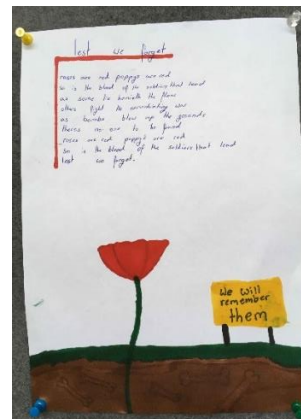 lest we forget
roses are red poppys are red
so is the blood of the soldiers that lead
as some lie beneath the
others fight to war
as bombs blow up the grounds
theres no one to be found
roses are red poppys are red
so is the blood of the soldiers that lead
lest we forget.
We will
remember
them